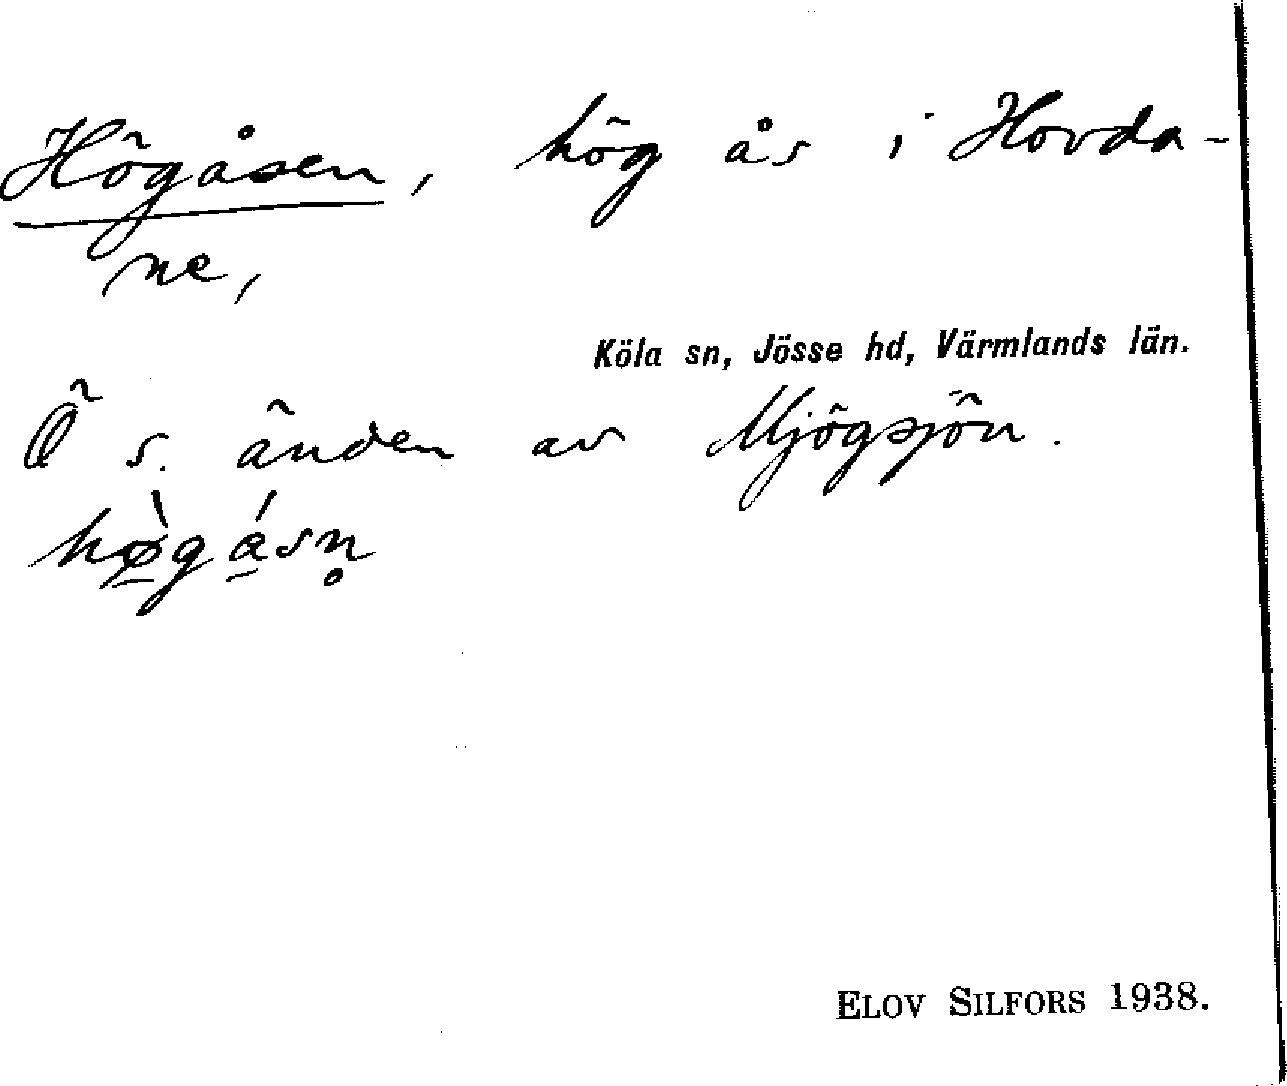 Högåsen, hög ås i Hovda-
ne,
Köla sn, Jösse hd, Värmlands län.
Ö s. änden av Mjögsjön.
hø̠̀gá̠sn̥
ELOV SILFORS 1938.